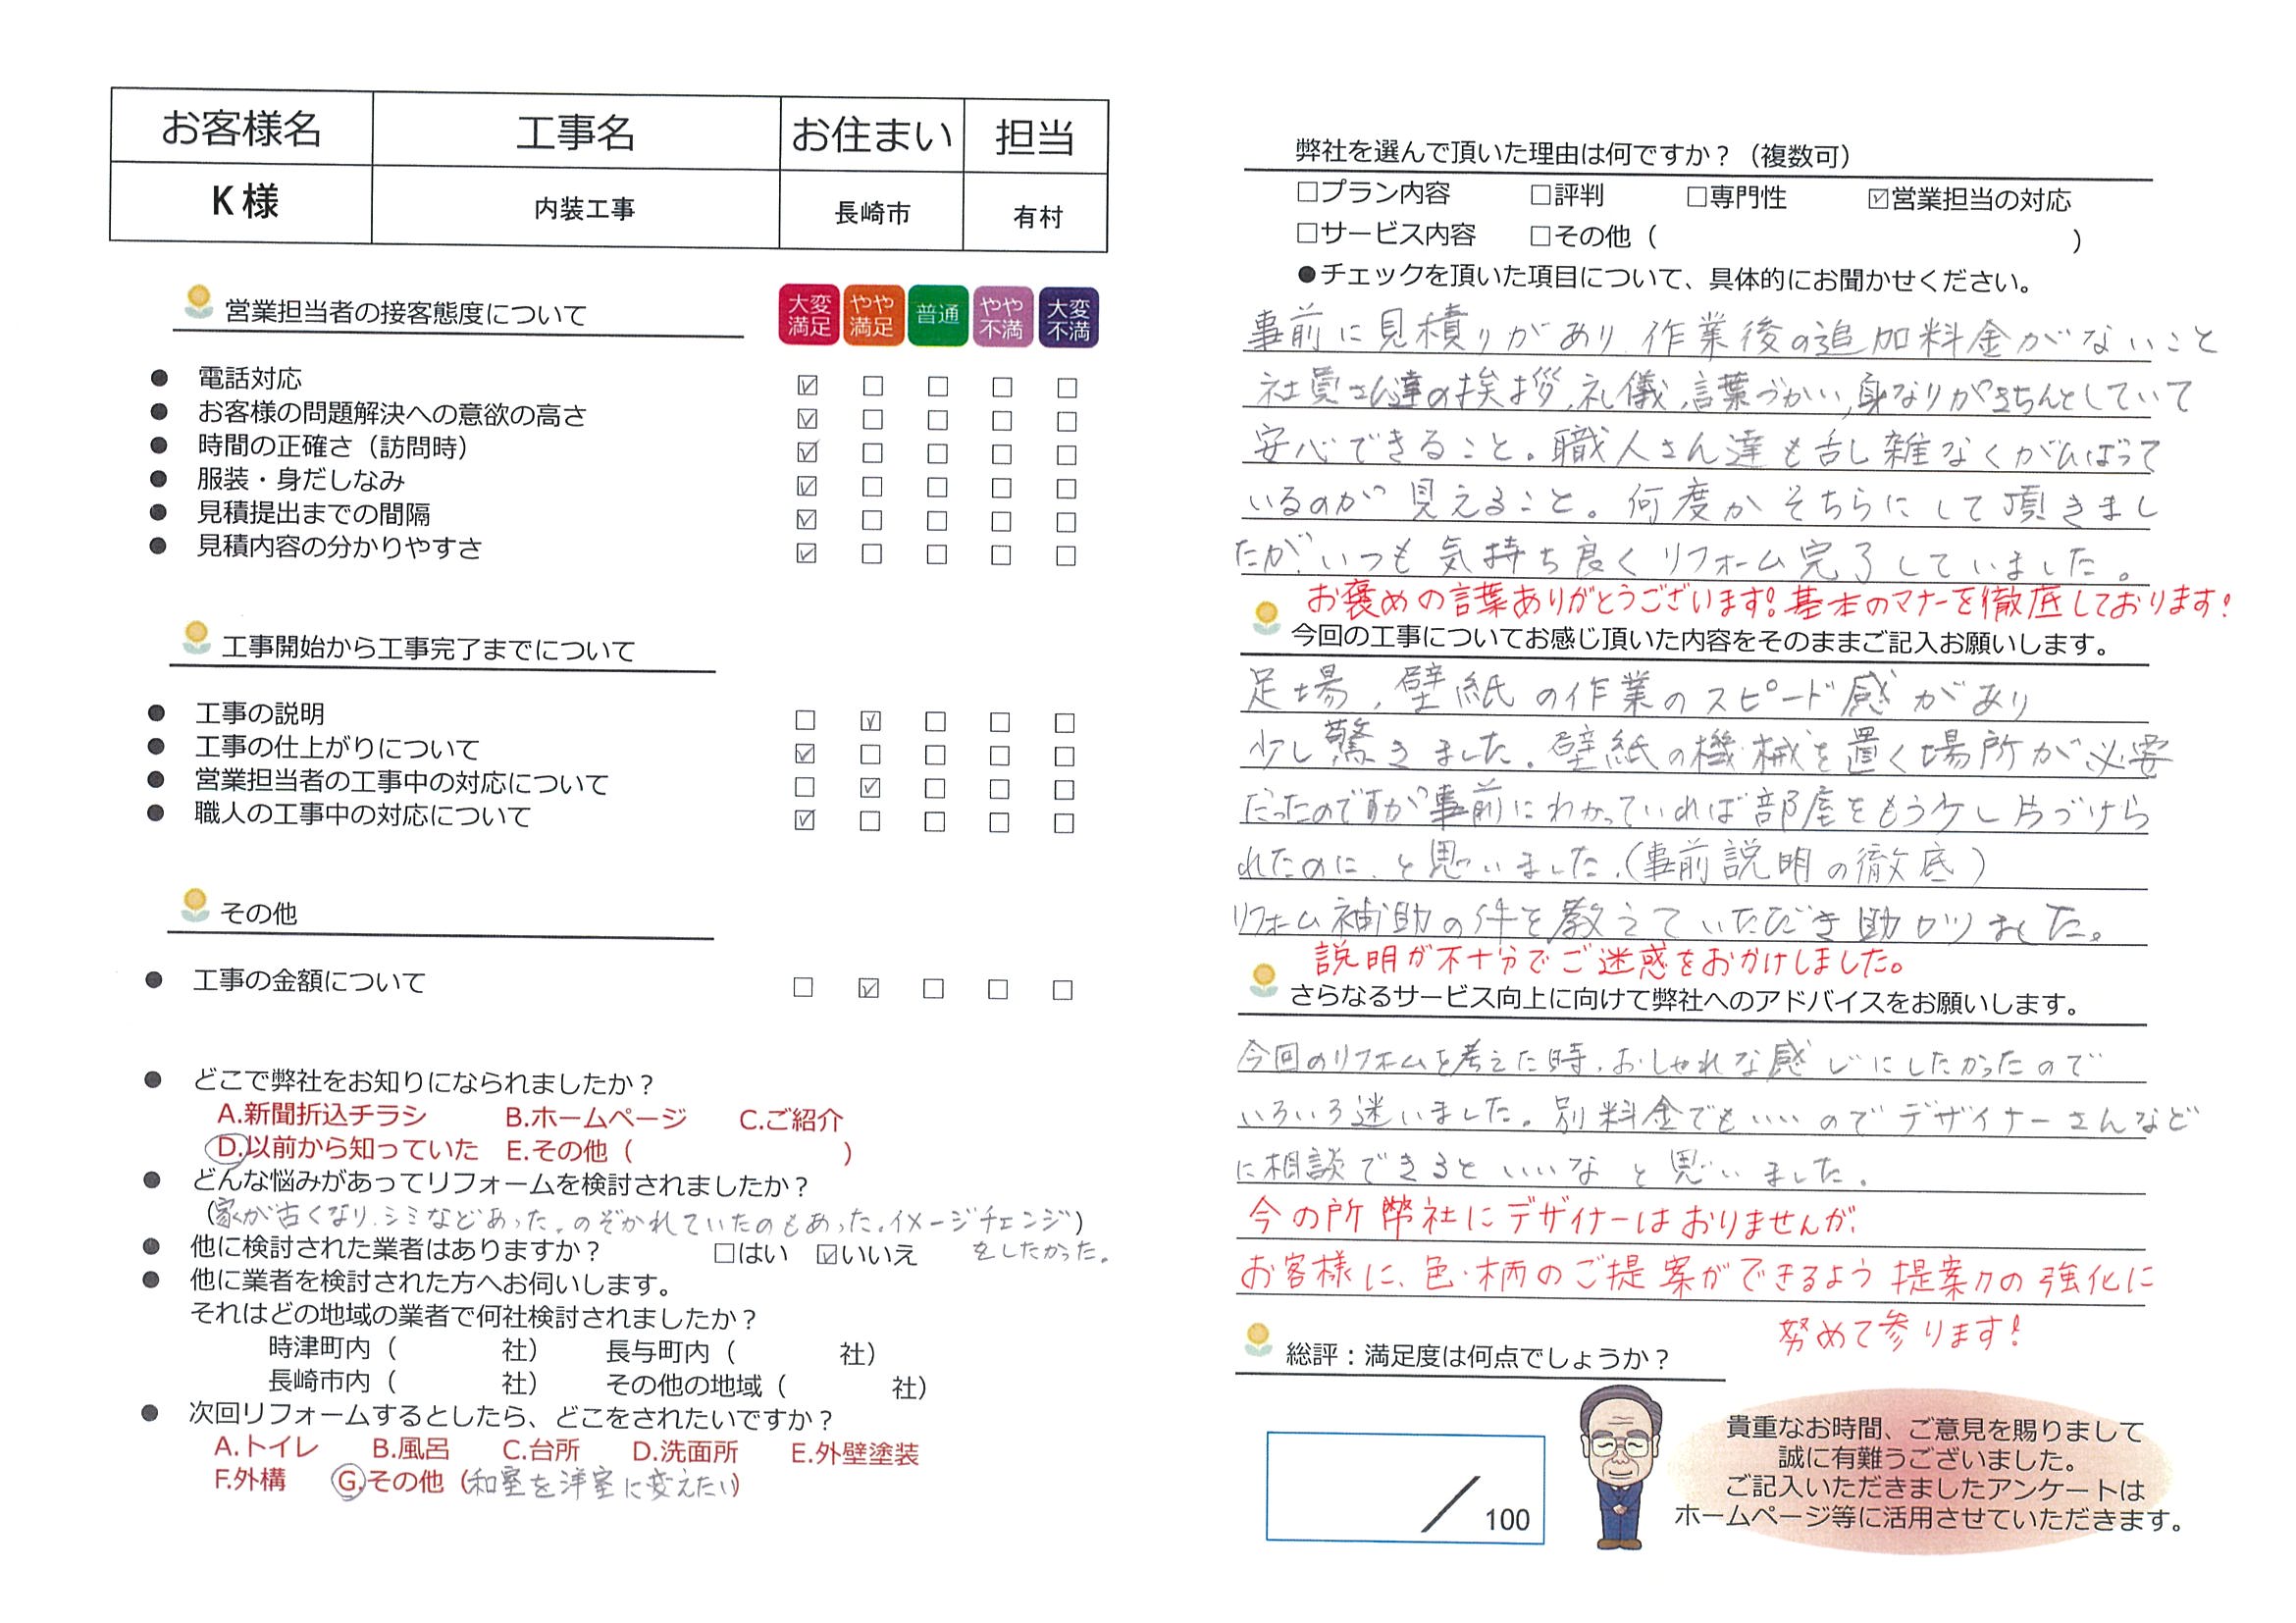 お客様名 工事名 お住まい 担当
K様 内装工事 長崎市 有村
営業担当者の接客態度について 大変満足 やや満足 普通 やや不満 大変不満
● 電話対応 ☑ □ □ □ □
● お客様の問題解決への意欲の高さ ☑ □ □ □ □
● 時間の正確さ（訪問時） ☑ □ □ □ □
● 服装・身だしなみ ☑ □ □ □ □
● 見積提出までの間隔 ☑ □ □ □ □
● 見積内容の分かりやすさ ☑ □ □ □ □
工事開始から工事完了までについて
● 工事の説明 □ ☑ □ □ □
● 工事の仕上がりについて ☑ □ □ □ □
● 営業担当者の工事中の対応について □ ☑ □ □ □
● 職人の工事中の対応について ☑ □ □ □ □
その他
● 工事の金額について □ ☑ □ □ □
● どこで弊社をお知りになられましたか？
A.新聞折込チラシ B.ホームページ C.ご紹介
D.以前から知っていた E.その他（ ）
● どんな悩みがあってリフォームを検討されましたか？
（家が古くなり、シミなどあった。のぞかれていたのもあった。イメージチェンジ）
をしたかった。
● 他に検討された業者はありますか？ □はい ☑いいえ
● 他に業者を検討された方へお伺いします。
それはどの地域の業者で何社検討されましたか？
時津町内（ 社） 長与町内（ 社）
長崎市内（ 社） その他の地域（ 社）
● 次回リフォームするとしたら、どこをされたいですか？
A.トイレ B.風呂 C.台所 D.洗面所 E.外壁塗装
F.外構 G.その他（和室を洋室に変えたい）
弊社を選んで頂いた理由は何ですか？（複数可）
□プラン内容 □評判 □専門性 ☑営業担当の対応
□サービス内容 □その他（ ）
●チェックを頂いた項目について、具体的にお聞かせください。
事前に見積りがあり、作業後の追加料金がないこと
社員さん達の挨拶、礼儀、言葉づかい、身なりがきちんとしていて
安心できること。職人さん達も乱雑なくがんばって
いるのが見えること。何度かそちらにして頂きまし
たが、いつも気持ち良くリフォーム完了していました。
お褒めの言葉ありがとうございます！基本のマナーを徹底しております！
今回の工事についてお感じ頂いた内容をそのままご記入お願いします。
足場、壁紙の作業のスピード感があり
少し驚きました。壁紙の機械を置く場所が必要
だったのですが事前にわかっていれば部屋をもう少し片づけら
れたのに、と思いました。（事前説明の徹底）
リフォーム補助の件を教えていただき助かりました。
説明が不十分でご迷惑をおかけしました。
さらなるサービス向上に向けて弊社へのアドバイスをお願いします。
今回のリフォームを考えた時、おしゃれな感じにしたかったので
いろいろ迷いました。別料金でもいいのでデザイナーさんなど
に相談できるといいなと思いました。
今の所弊社にデザイナーはおりませんが、
お客様に、色・柄のご提案ができるよう提案力の強化に
努めて参ります！
総評：満足度は何点でしょうか？
／100
貴重なお時間、ご意見を賜りまして
誠に有難うございました。
ご記入いただきましたアンケートは
ホームページ等に活用させていただきます。